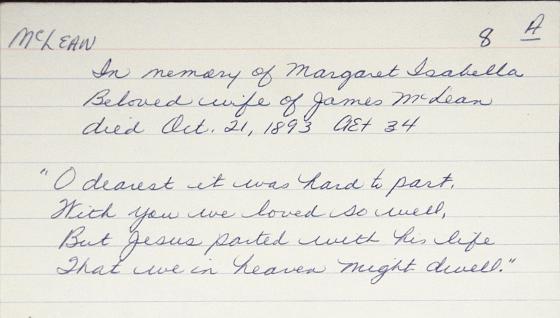 McLEAN 8 A
In memory of Margaret Isabella
Beloved wife of James McLean
died Oct. 21, 1893 AEt 34
"O dearest it was hard to part,
With you we loved so well,
But Jesus parted with his life
That we in heaven might dwell."